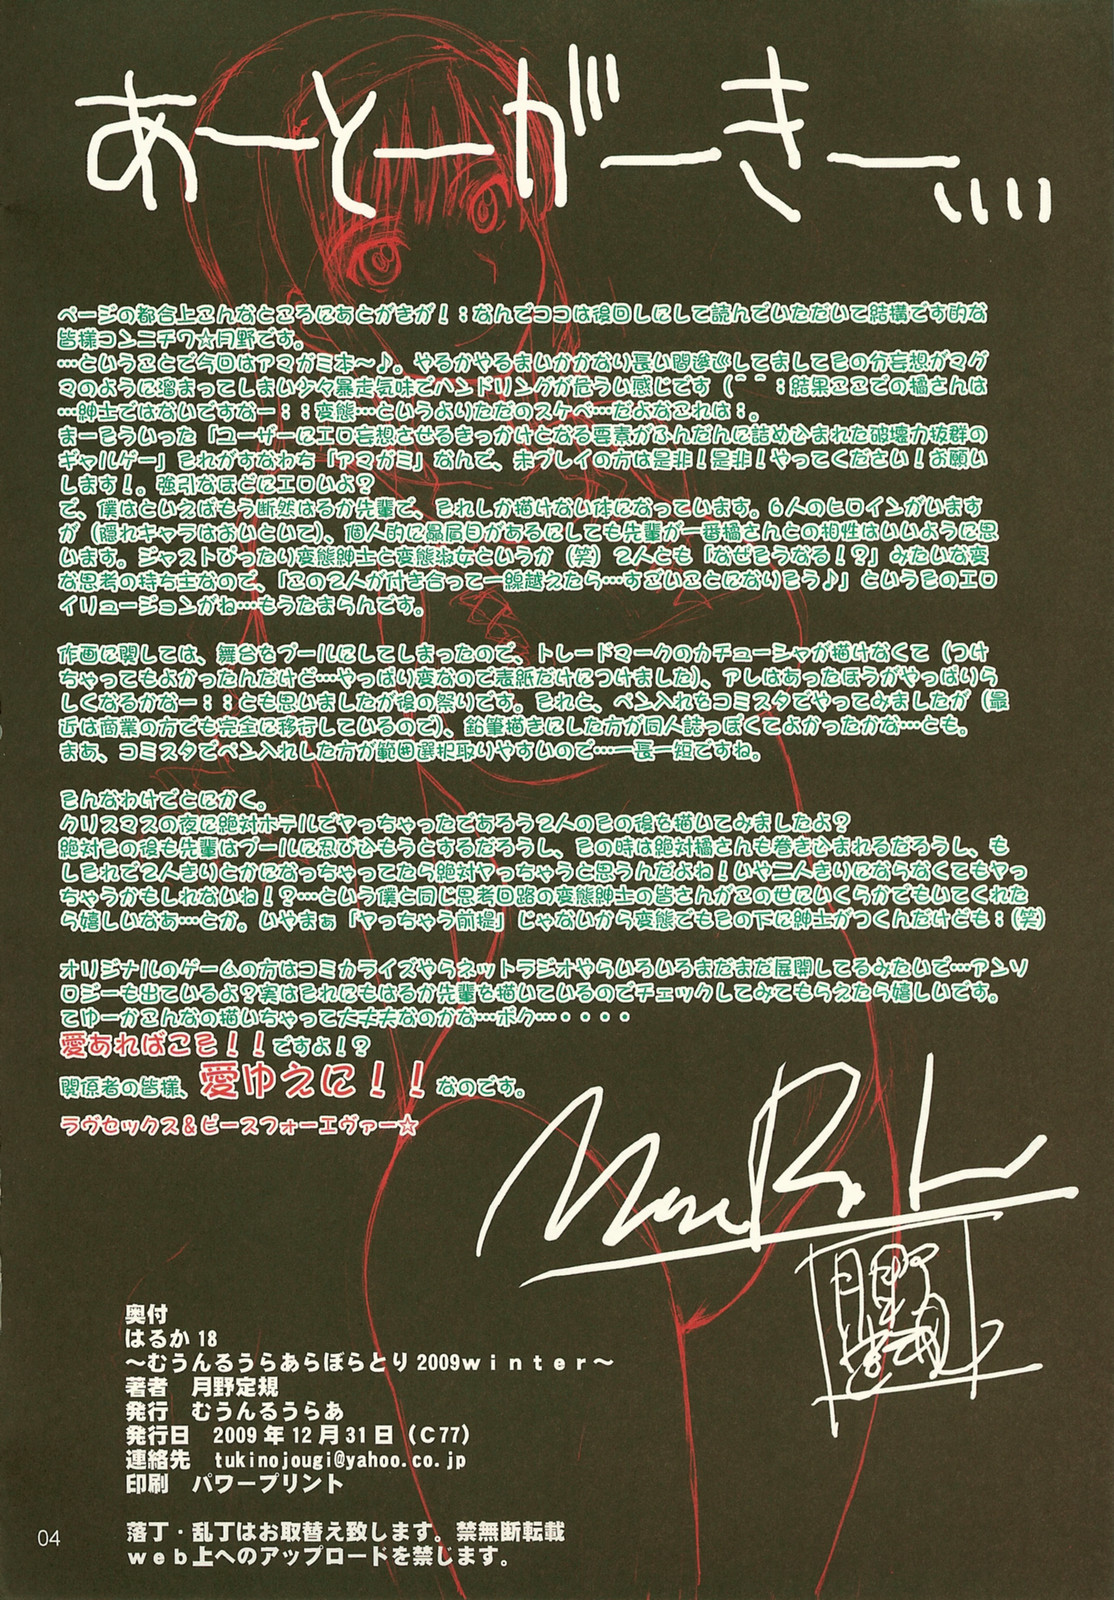 あーとーがーきー、、、、
ページの都合上こんなところにあとがきが！；なんでココは後回しにして読んでいただいて結構です的な
皆様コンニチワ☆月野です。
…ということで今回はアマガミ本〜♪。やるかやるまいかかない長い間逡巡してましてその分妄想がマグ
マのように溜まってしまい少々暴走気味でハンドリングが危うい感じです（＾＾；結果ここでの橘さんは
…紳士ではないですなー；；変態…というよりただのスケベ…だよなこれは；。
まーそういった「ユーザーにエロ妄想させるきっかけとなる要素がふんだんに詰め込まれた破壊力抜群の
ギャルゲー」それがすなわち「アマガミ」なんで、未プレイの方は是非！是非！やってください！お願い
します！。強引なほどにエロいよ？
で、僕はといえばもう断然はるか先輩で、それしか描けない体になっています。6人のヒロインがいます
が（隠れキャラはおいといて）、個人的に贔屓目があるにしても先輩が一番橘さんとの相性はいいように思
います。ジャストぴったり変態紳士と変態淑女というか（笑）2人とも「なぜそうなる！？」みたいな変
な思考の持ち主なので、「この2人が付き合って一線越えたら…すごいことになりそう♪」というそのエロ
イリュージョンがね…もうたまらんです。
作画に関しては、舞台をプールにしてしまったので、トレードマークのカチューシャが描けなくて（つけ
ちゃってもよかったんだけど…やっぱり変なので表紙だけにつけました）、アレはあったほうがやっぱりら
しくなるかなー；；とも思いましたが後の祭りです。それと、ペン入れをコミスタでやってみましたが（最
近は商業の方でも完全に移行しているので）、鉛筆描きにした方が同人誌っぽくてよかったかな…とも。
まあ、コミスタでペン入れした方が範囲選択取りやすいので…一長一短ですね。
そんなわけでとにかく。
クリスマスの夜に絶対ホテルでヤっちゃったであろう2人のその後を描いてみましたよ？
絶対その後も先輩はプールに忍び込もうとするだろうし、その時は絶対橘さんも巻き込まれるだろうし、も
しそれで2人きりとかになっちゃってたら絶対ヤっちゃうと思うんだよね！いや二人きりにならなくてもヤっ
ちゃうかもしれないね！？…という僕と同じ思考回路の変態紳士の皆さんがこの世にいくらかでもいてくれた
ら嬉しいなあ…とか。いやまぁ「ヤっちゃう前提」じゃないから変態でもその下に紳士がつくんだけども；（笑）
オリジナルのゲームの方はコミカライズやらネットラジオやらいろいろまだまだ展開してるみたいで…アンソ
ロジーも出ているよ？実はそれにもはるか先輩を描いているのでチェックしてみてもらえたら嬉しいです。
てゆーかこんなの描いちゃって大丈夫なのかな…ボク…・・・・
愛あればこそ！！ですよ！？
関係者の皆様、愛ゆえに！！なのです。
ラヴセックス＆ピースフォーエヴァー☆
月野定規
奥付
はるか18
〜むうんるうらあらぼらとり2009winter〜
著者　月野定規
発行　むうんるうらあ
発行日　2009年12月31日（C77）
連絡先　tukinojougi@yahoo.co.jp
印刷　パワープリント
04
落丁・乱丁はお取替え致します。禁無断転載
web上へのアップロードを禁じます。